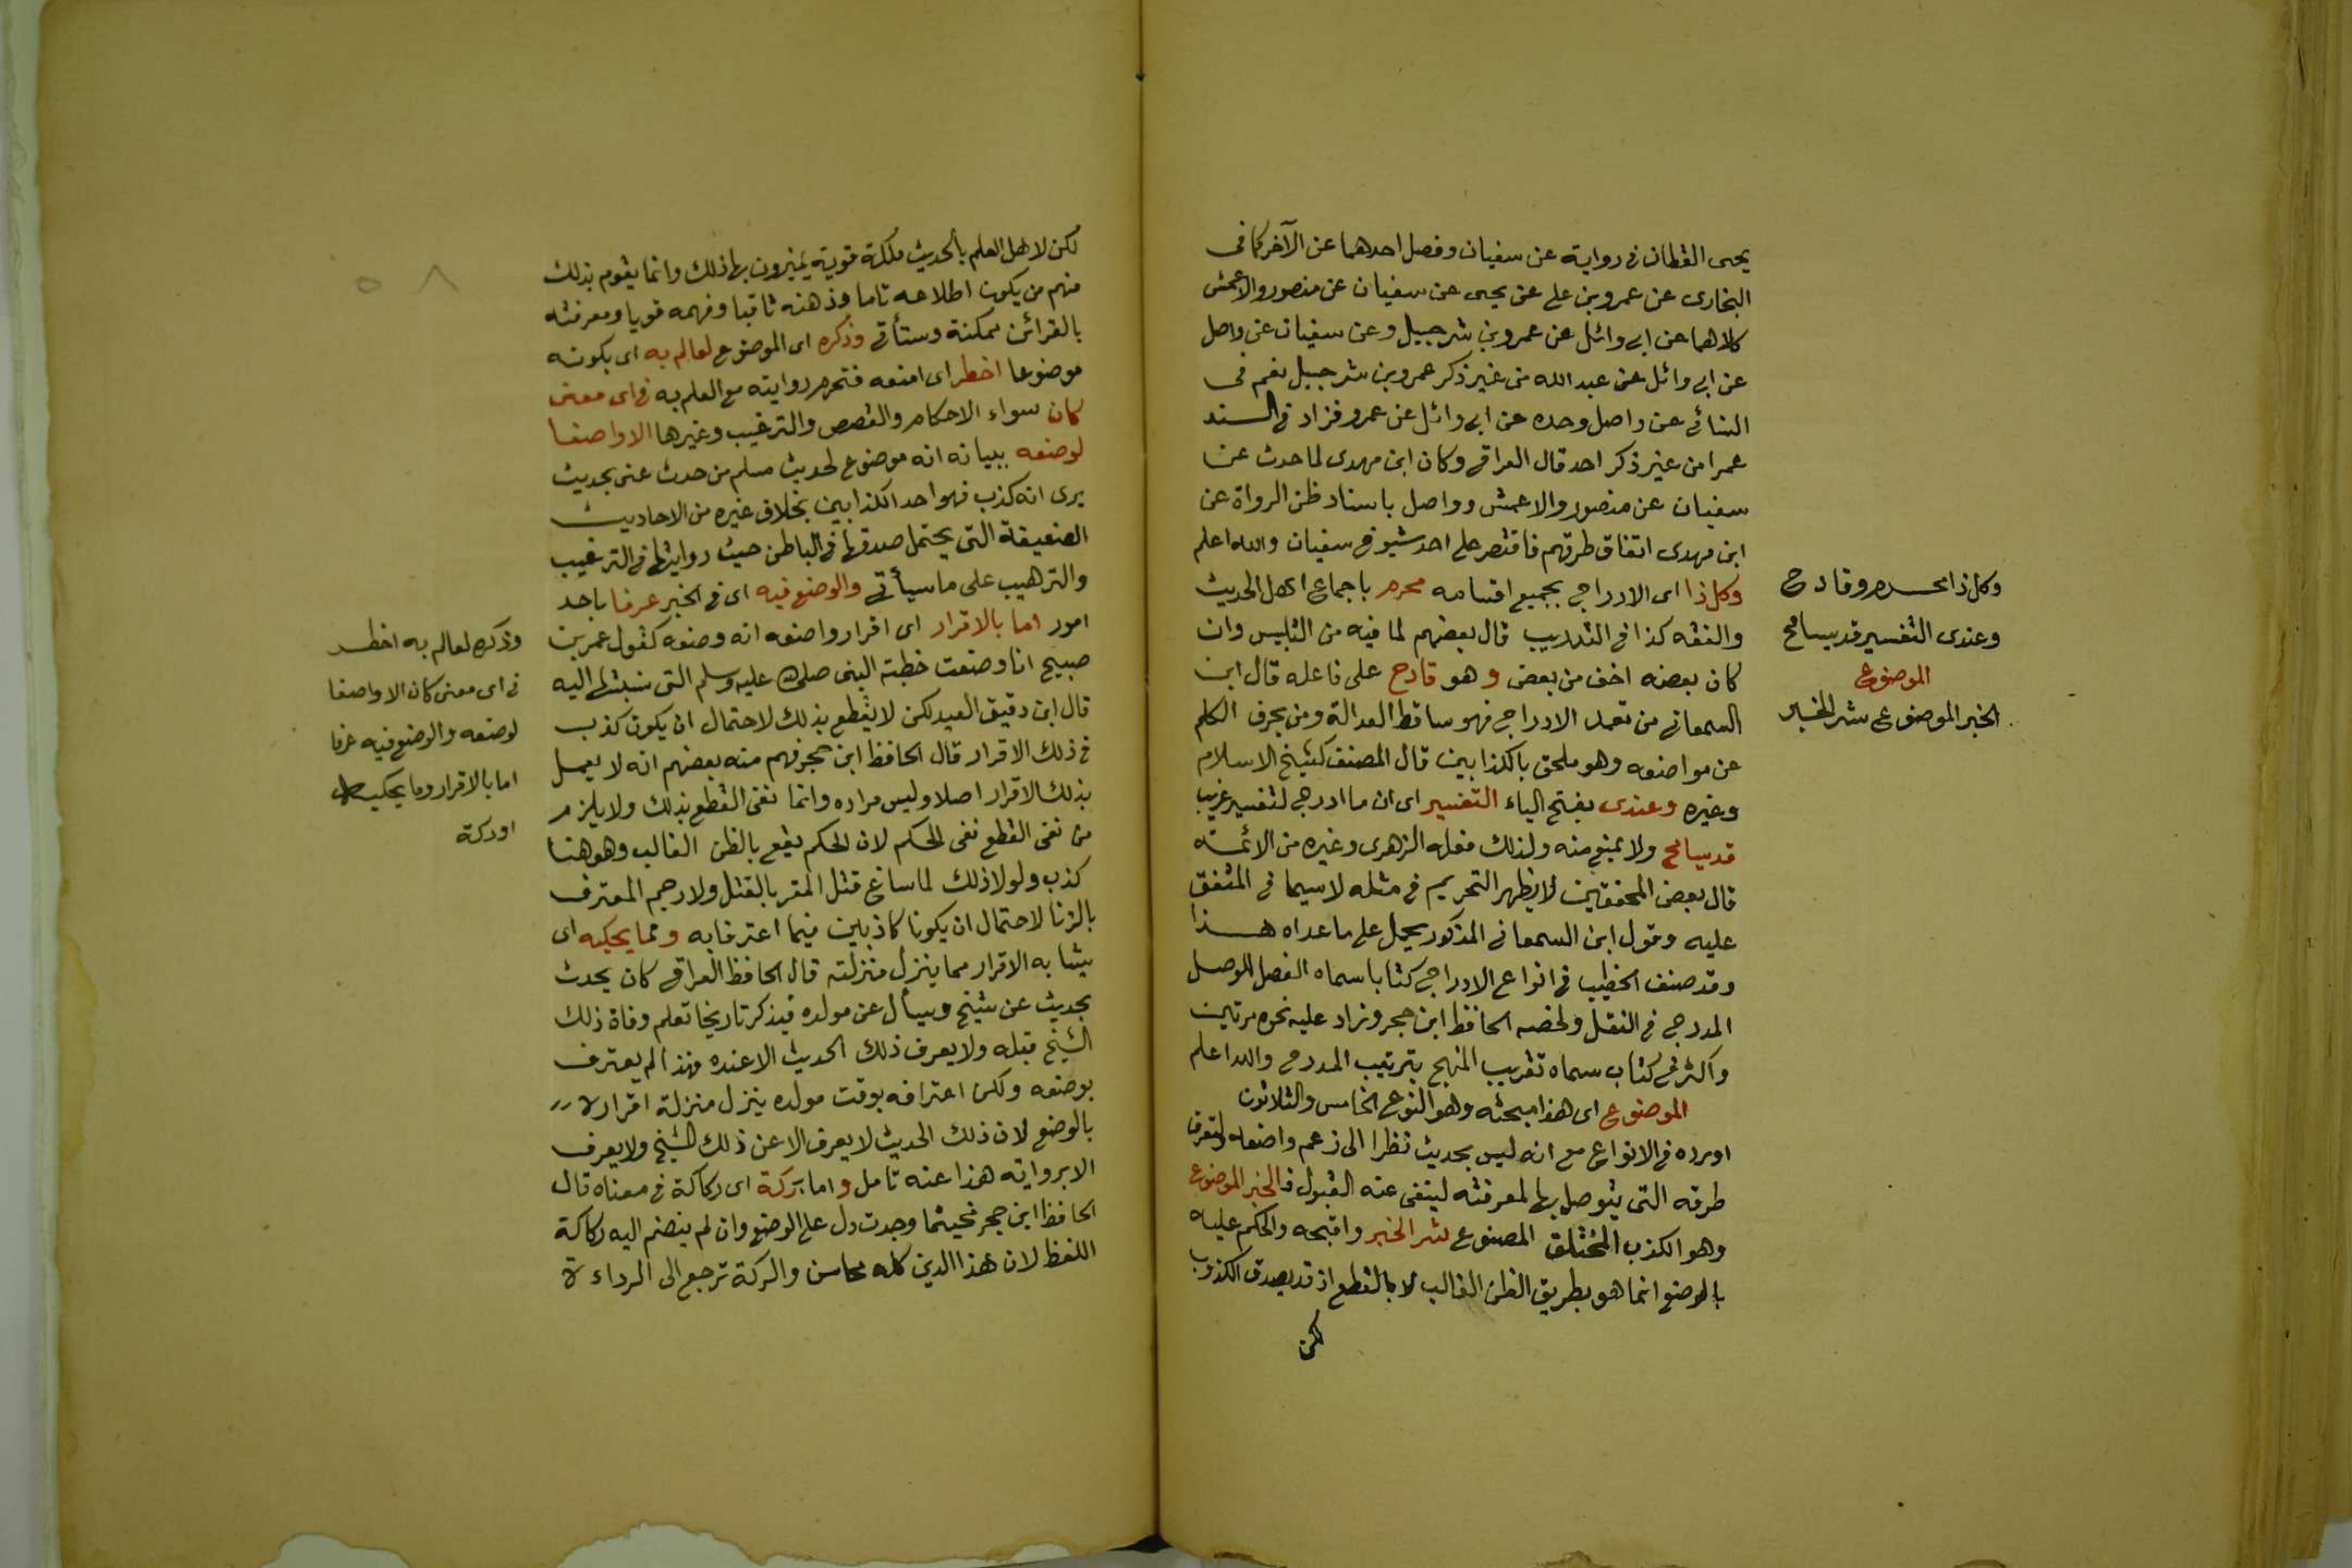 يحيى القطان في رواية عن سفيان وفصل احدهما عن الآخر كما في
البخارى عن عمرو بن على عن يحيى عن سفيان عن منصور والاعمش
كلاهما عن ابى وائل عن عمرو بن شرحبيل وعن سفيان عن واصل
عن ابى وائل عن عبد الله من غير ذكر عمرو بن شرحبيل نعم في
النسائي عن واصل وحده عن ابى وائل عن عمرو فزاد في السند
عمرا من غير ذكر احد قال العراقي وكان ابن مهدى لما حدث عن
سفيان عن منصور والاعمش وواصل باسناد ظن الرواة عن
ابن مهدى اتفاق طرقهم فاقتصر على احد شيوخ سفيان والله اعلم
وكل ذا اى الادراج بجميع اقسامه محرم باجماع اهل الحديث
والفقه كذا في التدريب قال بعضهم لما فيه من التلبيس وان
كان بعضه اخف من بعض وهو قادح على فاعله قال ابن
السمعاني من تعمد الادراج فهو ساقط العدالة ومن يحرف الكلم
عن مواضعه وهو ملحق بالكذابين قال المصنف كشيخ الاسلام
وغيره وعندى بفتح الياء التفسير اى ان ما ادرج لتفسير غريب
قد يسامح ولا يمنع منه ولذلك فعله الزهرى وغيره من الائمة
قال بعض المحققين لا يظهر التحريم في مثله لاسيما في المتفق
عليه وقول ابن السمعاني المذكور يحمل على ما عداه هذا
وقد صنف الخطيب في انواع الادراج كتابا سماه الفصل للوصل
المدرج في النقل ولخصه الحافظ ابن حجر وزاد عليه نحوه مرتين
واكثر في كتاب سماه تقريب المنهج بترتيب المدرج والله اعلم
الموضوع اى هذا مبحثه وهو النوع الخامس والثلاثون
اورده في الانواع مع انه ليس بحديث نظرا الى زعم واضعه ولتعرف
طرقه التى يتوصل بها لمعرفته لينفى عنه القبول فـ الخبر الموضوع
وهو الكذب المختلق المصنوع شر الخبر واقبحه والحكم عليه
بالوضع انما هو بطريق الظن الغالب لا بالقطع اذ قد يصدق الكذوب
لكن
وكل ذا محرم وقادح
وعندى التفسير قد يسامح
الموضوع
الخبر الموضوع شر الخبر
لكن لاهل العلم بالحديث ملكة قوية يميزون بها ذلك وانما يقوم بذلك
منهم من يكون اطلاعه تاما وذهنه ثاقبا وفهمه قويا ومعرفته
بالقرائن ممكنة وستأتي وذكره اى الموضوع لعالم به اى بكونه
موضوعا احظر اى امنعه فتحرم روايته مع العلم به في اى معنى
كان سواء الاحكام والقصص والترغيب وغيرها الا واصفا
لوضعه ببيانه انه موضوع لحديث مسلم من حدث عنى بحديث
يرى انه كذب فهو احد الكذابين بخلاف غيره من الاحاديث
الضعيفة التى يحتمل صدقها في الباطن حيث روايتها في الترغيب
والترهيب على ما سيأتي والوضع فيه اى في الخبر عرفا باحد
امور اما بالاقرار اى اقرار واضعه انه وضعه كقول عمر بن
صبيح انا وضعت خطبة النبى صلى الله عليه وسلم التى نسبتها اليه
قال ابن دقيق العيد لكن لا يقطع بذلك لاحتمال ان يكون كذب
في ذلك الاقرار قال الحافظ ابن حجر فهم منه بعضهم انه لا يعمل
بذلك الاقرار اصلا وليس مراده وانما نفى القطع بذلك ولا يلزم
من نفى القطع نفى الحكم لان الحكم يقع بالظن الغالب وهو هنا
كذب ولولا ذلك لما ساغ قتل المقر بالقتل ولا رجم المعترف
بالزنا لاحتمال ان يكونا كاذبين فيما اعترفا به ومما يحكيه اى
يشابه الاقرار مما ينزل منزلته قال الحافظ العراقي كان يحدث
بحديث عن شيخ ويسأل عن مولده فيذكر تاريخا تعلم وفاة ذلك
الشيخ قبله ولا يعرف ذلك الحديث الا عنده فهذا لم يعترف
بوضعه ولكن اعترافه بوقت مولده ينزل منزلة اقراره
بالوضع لان ذلك الحديث لا يعرف الا عن ذلك الشيخ ولا يعرف
الا بروايته هذا عنه تامل واما بركة اى ركاكة في معناه قال
الحافظ ابن حجر فحيثما وجدت دل على الوضع وان لم ينضم اليه ركاكة
اللفظ لان هذا الدين كله محاسن والركة ترجع الى الرداءة
٥٨
وذكره لعالم به احظر
في اى معنى كان الا واصفا
لوضعه والوضع فيه عرفا
اما بالاقرار وما يحكيه
او ركة